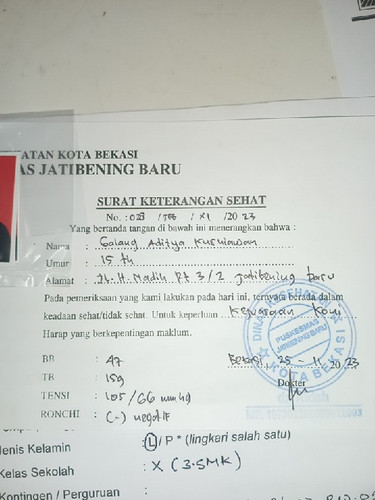 ATAN KOTA BEKASI
AS JATIBENING BARU
SURAT KETERANGAN SEHAT
No. : 028 / / XI / 2023
Yang bertanda tangan di bawah ini menerangkan bahwa :
Nama : Galang Aditya Kurniawan
Umur : 15 th
Alamat : JL. H. Madih Rt 3/2 Jatibening baru
Pada pemeriksaan yang kami lakukan pada hari ini, ternyata berada dalam
keadaan sehat/tidak sehat. Untuk keperluan Kejuaraan Koni
Harap yang berkepentingan maklum.
BB : 47
TB : 159
TENSI : 105/66 mmHg
RONCHI : (-) negatif
Bekasi, 25 - 11 2023
Dokter
DINAS KESEHATAN
PUSKESMAS
JATIBENING BARU
KOTA BEKASI
Jenis Kelamin : L/P * (lingkari salah satu)
Kelas Sekolah : X (3.SMK)
Kontingen / Perguruan :